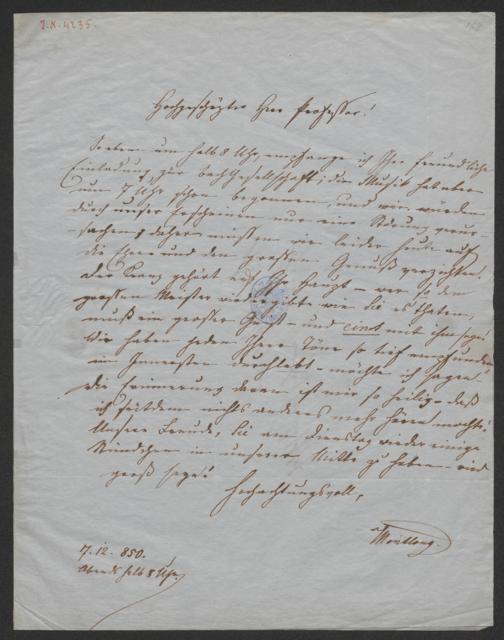 I.N. 4235.
Hochgeschäzter Herr Professor!
Soeben um halb 8 Uhr, empfange ich Ihre freundliche
Einladung zur Bachgesellschaft; die Musik hat aber
um 7 Uhr schon begonnen, und wir würden
durch unser Erscheinen nur eine Störung verur-
sachen; daher müssen wir leider heute auf
die Ehre und den grossen Genuß verzichten.
Der Kranz gehört auf Ihr Haupt – wer so den
grossen Meister wiedergibt wie Sie es thaten,
muß ein grosser Geist – und eins mit ihm seyn!
Wir haben jeden Ihrer Töne so tief empfunden
im Innersten durchlebt – möchte ich sagen!
die Erinnerung daran ist mir so heilig – daß
ich seitdem nichts anderes mehr hören mochte!
Unsere Freude, Sie am Dienstag wieder einige
Stündchen in unserer Mitte zu haben – wird
groß seyn!
Hochachtungsvoll,
Montlong.
7. 12. 850.
Abends halb 8 Uhr.